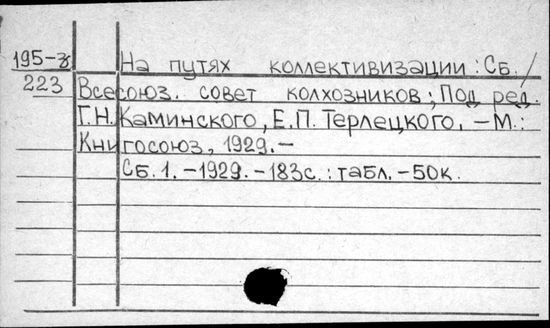 195-3 На путях коллективизации: Сб. /
223 Всесоюз. совет колхозников; Под ред.
Г.Н. Каминского, Е.П. Терлецкого. – М.:
Книгосоюз, 1929. –
Сб. 1. – 1929. – 183с.: табл. – 50к.